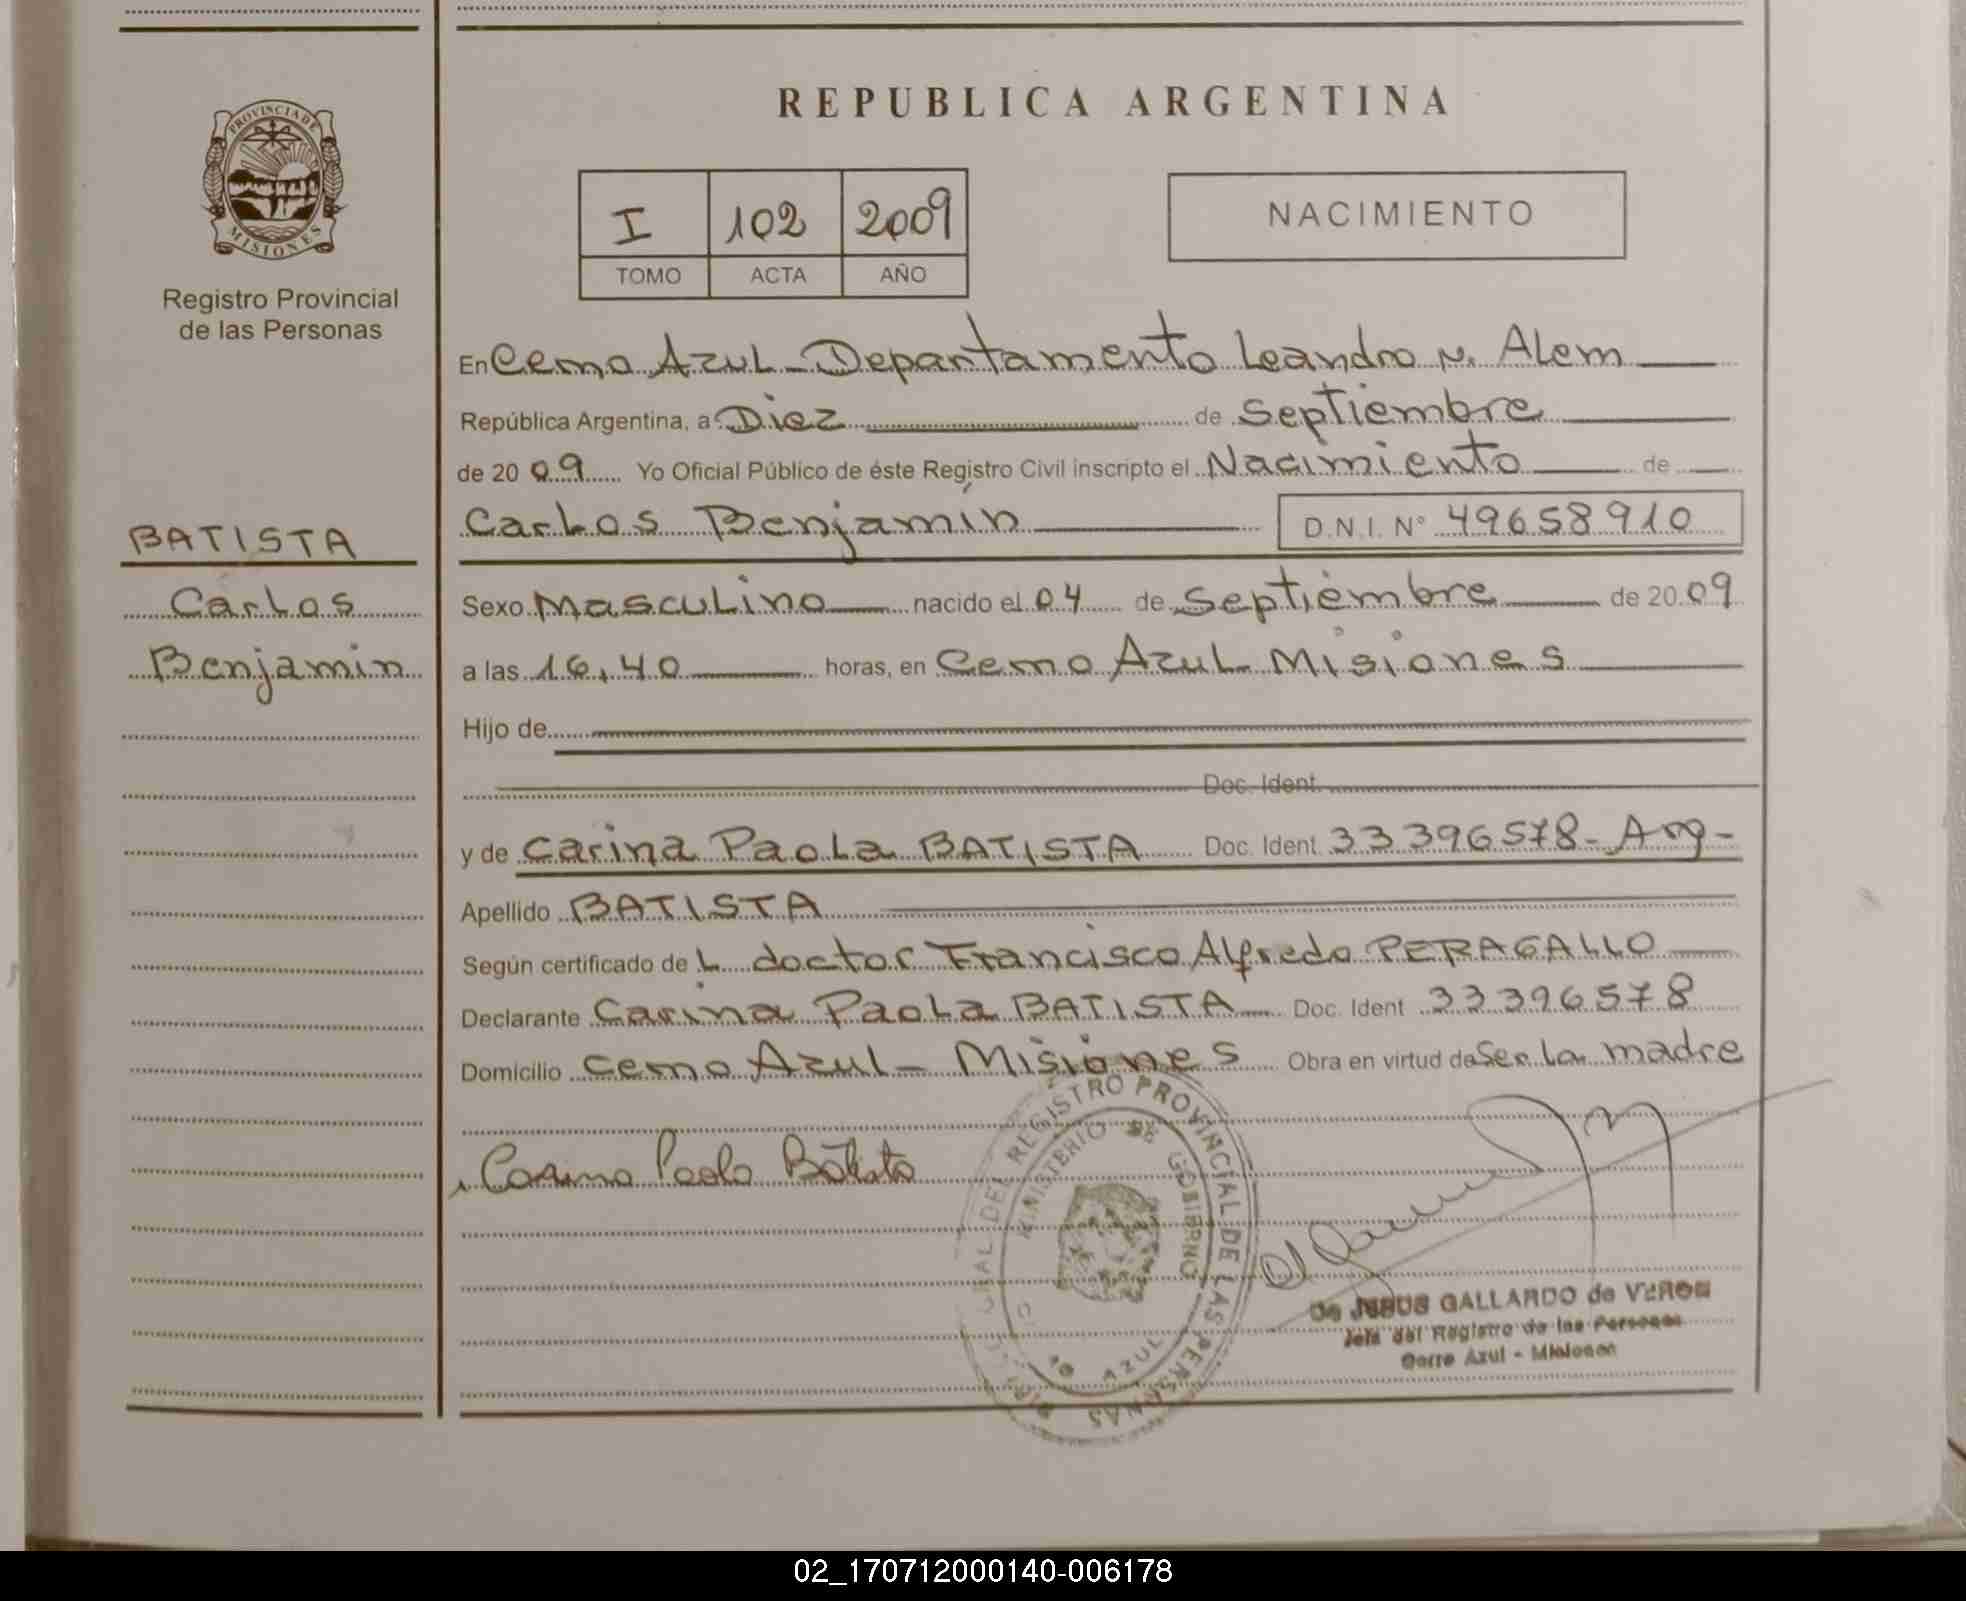 PROVINCIA DE
MISIONES
Registro Provincial
de las Personas
BATISTA
Carlos
Benjamin
REPUBLICA ARGENTINA
I 102 2009
TOMO ACTA AÑO
NACIMIENTO
En Cerro Azul - Departamento Leandro N. Alem
República Argentina, a Diez de Septiembre
de 20 09 Yo Oficial Público de éste Registro Civil inscripto el Nacimiento de
Carlos Benjamín D.N.I. N° 49658910
Sexo Masculino nacido el 04 de Septiembre de 20 09
a las 16,40 horas, en Cerro Azul Misiones
Hijo de
Doc. Ident.
y de Carina Paola BATISTA Doc. Ident. 33396578 - Arg -
Apellido BATISTA
Según certificado de L doctor Francisco Alfredo PERAGALLO
Declarante Carina Paola BATISTA Doc. Ident 33396578
Domicilio Cerro Azul - Misiones Obra en virtud de Ser la madre
Carina Paola Batista
REGISTRO PROVINCIAL DE LAS PERSONAS
MINISTERIO DE GOBIERNO
AZUL
de JESUS GALLARDO de VERON
Jefe del Registro de las Personas
Cerro Azul - Misiones
02_170712000140-006178